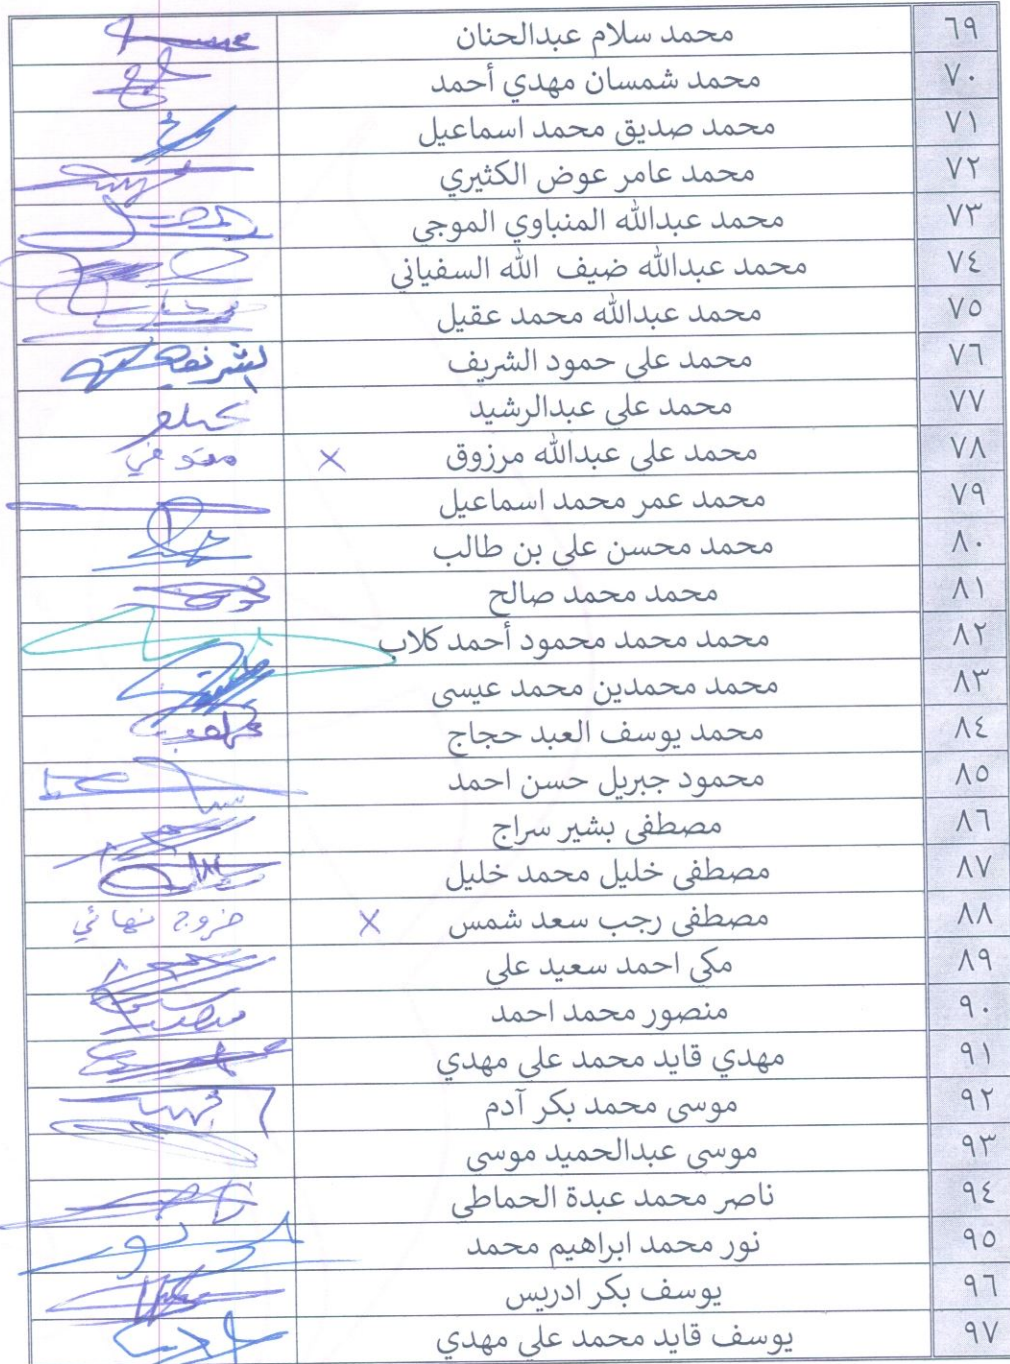 ٦٩ محمد سلام عبدالحنان
٧٠ محمد شمسان مهدي أحمد
٧١ محمد صديق محمد اسماعيل
٧٢ محمد عامر عوض الكثيري
٧٣ محمد عبدالله المنباوي الموجي
٧٤ محمد عبدالله ضيف الله السفياني
٧٥ محمد عبدالله محمد عقيل
٧٦ محمد علي حمود الشريف
٧٧ محمد علي عبدالرشيد
٧٨ محمد علي عبدالله مرزوق × متوفي
٧٩ محمد عمر محمد اسماعيل
٨٠ محمد محسن علي بن طالب
٨١ محمد محمد صالح
٨٢ محمد محمد محمود أحمد كلاب
٨٣ محمد محمدين محمد عيسى
٨٤ محمد يوسف العبد حجاج
٨٥ محمود جبريل حسن احمد
٨٦ مصطفى بشير سراج
٨٧ مصطفى خليل محمد خليل
٨٨ مصطفى رجب سعد شمس × خروج نهائي
٨٩ مكي احمد سعيد علي
٩٠ منصور محمد احمد
٩١ مهدي قايد محمد علي مهدي
٩٢ موسى محمد بكر آدم
٩٣ موسى عبدالحميد موسى
٩٤ ناصر محمد عبدة الحماطي
٩٥ نور محمد ابراهيم محمد
٩٦ يوسف بكر ادريس
٩٧ يوسف قايد محمد علي مهدي